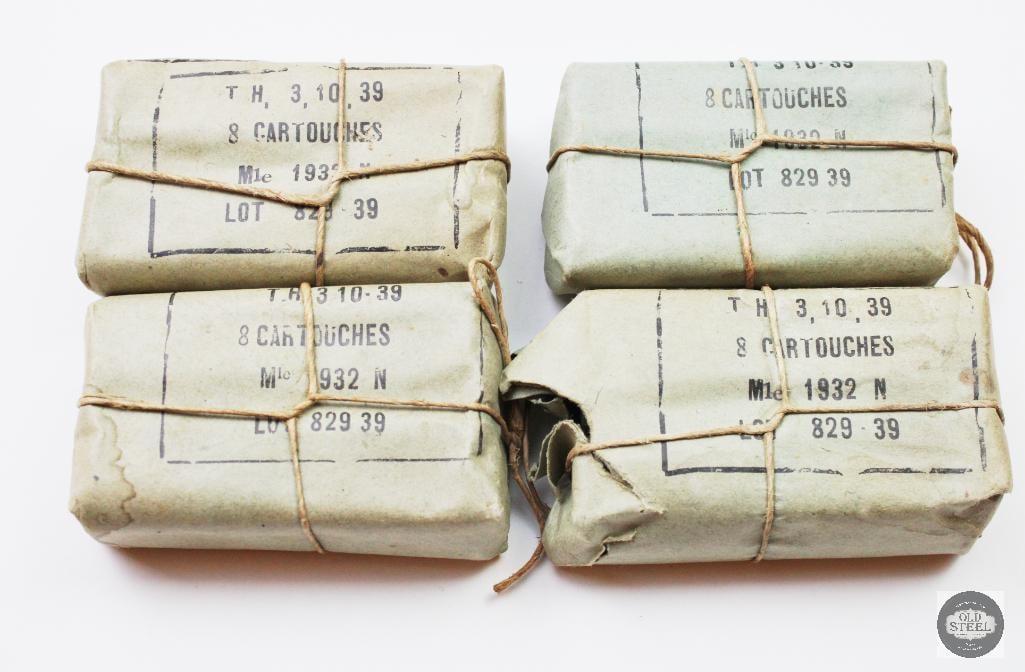 T H, 3,10,39
8 CARTOUCHES
Mle 1932 N
LOT 829 39
T.H 3 10-39
8 CARTOUCHES
Mle 1932 N
LOT 829 39
T.H 3 10-39
8 CARTOUCHES
Mle 1932 N
LOT 829 39
T H, 3,10,39
8 CARTOUCHES
Mle 1932 N
LOT 829-39
OLD
STEEL